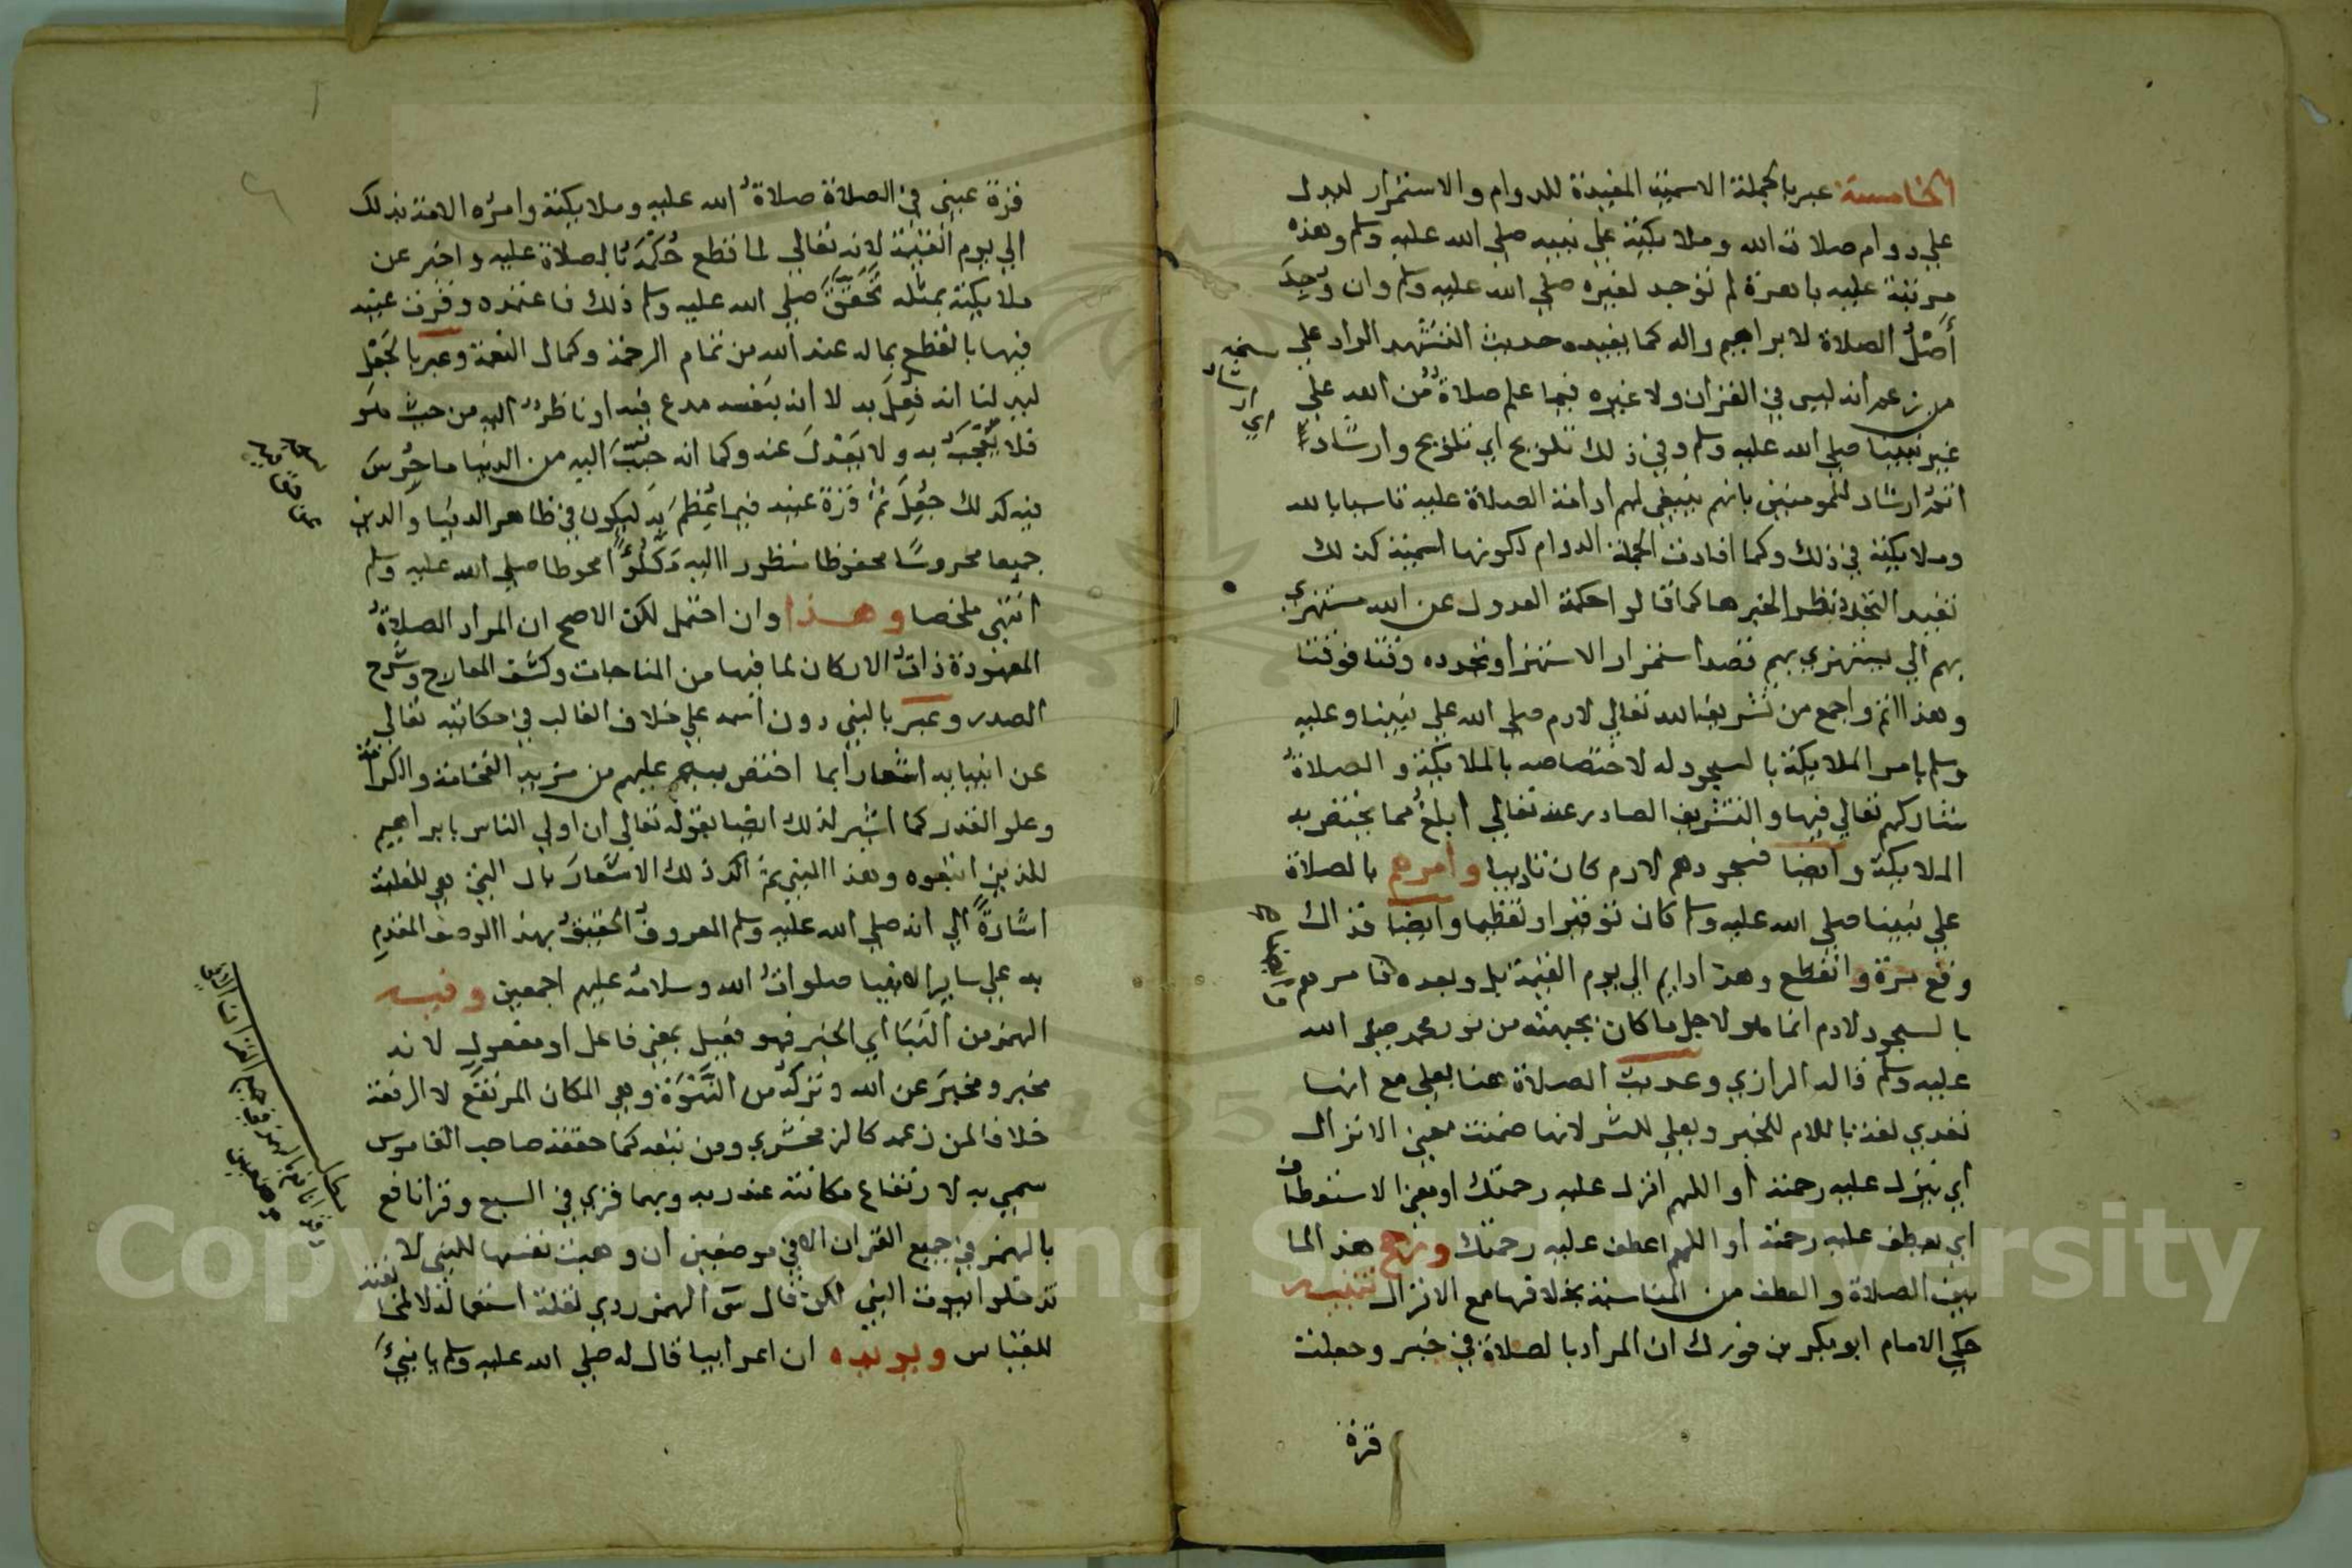 الخامسة عبر بالجملة الاسمية المفيدة للدوام والاستمرار لتدل
علي دوام صلاة الله وملائكته علي نبيه صلي الله عليه وسلم وهذه
مرتبة علية باهرة لم توجد لغيره صلي الله عليه وسلم وان وُجِدَ
أَصْلُ الصلاة لابراهيم واله كما يفيده حديث التشهد الراد علي
من زعم انه ليس في القران ولا غيره فيما علم صلاةٌ من الله علي
غير نبينا صلي الله عليه وسلم وفي ذلك تلويح اي تلويح وارشاد
اتم ارشاد للمومنين بانهم ينبغي لهم ادامة الصلاة عليه تاسيا بالله
وملائكته في ذلك وكما افادت الجملة الدوام لكونها اسمية كذلك
تفيد التجدد نظرا لخبرها كما قالوا حكمة العدول عن الله مستهزي
بهم الي يستهزي بهم قصد استمرار الاستهزا وتجدده وقتا فوقتا
وهذا اتم واجمع من تشريف الله تعالي لادم صلي الله علي نبينا وعليه
وسلم بامر الملائكة بالسجود له لاختصاصه بالملائكة والصلاةُ
شاركهم تعالي فيها والتشريف الصادر عنه تعالي ابلغ مما يختص به
الملائكة وايضا فسجودهم لادم كان تاديبا وامرهم بالصلاة
علي نبينا صلي الله عليه وسلم كان توقيرا وتعظيما وايضا فذاك
وقع مرة وانقطع وهذا دايم الي يوم القيمة بل وبعده فامرهم
بالسجود لادم انما هو لاجل ما كان بجبهته من نور محمد صلي الله
عليه وسلم قاله الرازي وعديت الصلاة هنا بعلي مع انها
تعدي لغة باللام للخير وبعلي للشر لانها ضمنت معني الانزال
أي ينزل عليه رحمته أو اللهم انزل عليه رحمتك او معني الاستعطاف
أي يعطف عليه رحمته أو اللهم اعطف عليه رحمتك ورجح هذا لما
بين الصلاة والعطف من المناسبة بخلافها مع الانزال تنبيه
حكي الامام ابو بكر بن فورك ان المراد بالصلاة في خبر وجعلت
قرة
قرة عيني في الصلاة صلاةُ الله عليه وملائكته وامره الامة بذلك
الي يوم القيمة لانه تعالي لما قطع حكمه بالصلاة عليه واخبر عن
ملائكته بمثله تحقق صلي الله عليه وسلم ذلك فاعتمده وقرت عينه
فيها بالقطع بماله عند الله من تمام الرحمة وكمال النعمة وعبر بالجعل
ليبر لنا انه فُعِلَ به لا انه بنفسه مدع فيه او ناظرٌ اليه من حيث هو
فلا يُعْجَبَ به ولا يَعْدِلَ عنه وكما انه حبب اليه من الدنيا ما حُرِسَ
فيه كذلك جُعِلَ ثَمَّ قرة عينه فيما يُعَظِّمُ به ليكون في ظاهر الدنيا والدين
جميعا محروسًا محفوظا منظورا اليه مَكْلُوًّا محوطا صلي الله عليه وسلم
انتهي ملخصا وهذا وان احتمل لكن الاصح ان المراد الصلاةُ
المعهودة ذاتُ الاركان لما فيها من المناجات وكشف المعارج وشرح
الصدر وعبر بالنبي دون اسمه علي خلاف الغالب في حكايته تعالي
عن انبيايه اشعارا بما اختص به عليهم من مزيد الفخامة والكرامة
وعلو القدر كما اشير لذلك ايضا بقوله تعالي ان اولي الناس بابراهيم
للذين اتبعوه وهذا النبي ثم اكد ذلك الاشعارَ بال التي هي للغلبة
اشارةً الي انه صلي الله عليه وسلم المعروفُ الحقيقُ بهذا الوصف المقدمِ
به علي ساير الانبيا صلواتُ الله وسلامه عليهم اجمعين وفيه
الهمز من النَّبَا أي الخبر فهو فعيل بمعني فاعل او مفعول لانه
مخبر ومخبَر عن الله وتركه من النَّبْوَة وهي المكان المرتفع لا الرفعة
خلافا لمن زعمه كالزمخشري ومن تبعه كما حققه صاحب القاموس
سمي به لارتفاع مكانته عند ربه وبهما قري في السبع وقرا نافع
بالهمز في جميع القران الا في موضعين ان وهبت نفسها للنبي لا
تدخلوا بيوت النبي لكن قال س الهمز ردي لقلة استعماله لا لمخالفته
للقياس ويويده ان اعرابيا قال له صلي الله عليه وسلم يا نبيءَ